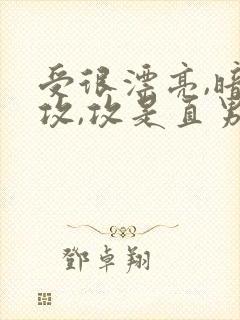 受很漂亮,暗
攻,攻是直男
鄧卓翔